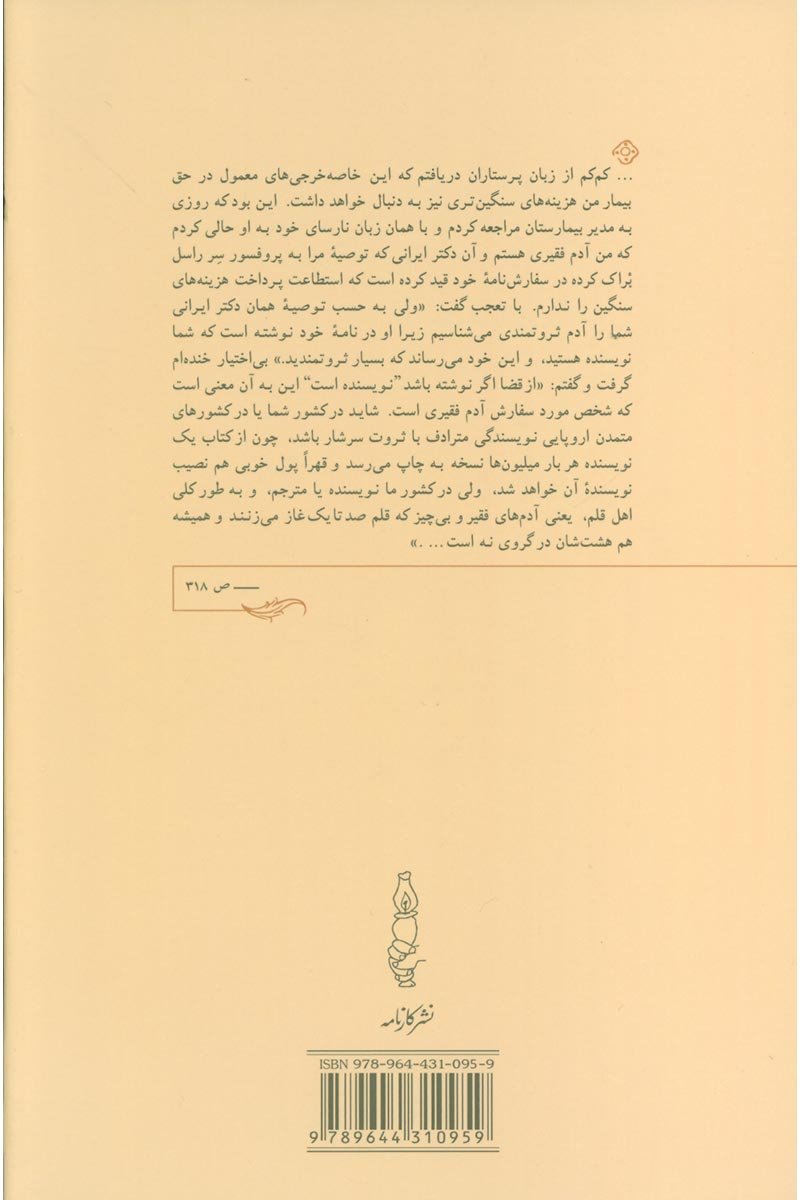 ... کم‌کم از زبان پرستاران دریافتم که این خاصه‌خرجی‌های معمول در حق
بیمار من هزینه‌های سنگین‌تری نیز به دنبال خواهد داشت. این بود که روزی
به مدیر بیمارستان مراجعه کردم و با همان زبان نارسای خود به او حالی کردم
که من آدم فقیری هستم و آن دکتر ایرانی که توصیهٔ مرا به پروفسور سِر راسل
بُراک کرده در سفارش‌نامهٔ خود قید کرده است که استطاعت پرداخت هزینه‌های
سنگین را ندارم. با تعجب گفت: «ولی به حسب توصیهٔ همان دکتر ایرانی
شما را آدم ثروتمندی می‌شناسیم زیرا او در نامهٔ خود نوشته است که شما
نویسنده هستید، و این خود می‌رساند که بسیار ثروتمندید.» بی‌اختیار خنده‌ام
گرفت و گفتم: «از قضا اگر نوشته باشد ”نویسنده است“ این به آن معنی است
که شخص مورد سفارش آدم فقیری است. شاید در کشور شما یا در کشورهای
متمدن اروپایی نویسندگی مترادف با ثروت سرشار باشد، چون از کتاب یک
نویسنده هر بار میلیون‌ها نسخه به چاپ می‌رسد و قهراً پول خوبی هم نصیب
نویسندهٔ آن خواهد شد، ولی در کشور ما نویسنده یا مترجم، و به طور کلی
اهل قلم، یعنی آدم‌های فقیر و بی‌چیز که قلم صد تا یک غاز می‌زنند و همیشه
هم هشت‌شان در گروی نه است... .»
— ص ۳۱۸
نشر کارنامه
ISBN 978-964-431-095-9
9 789644 310959